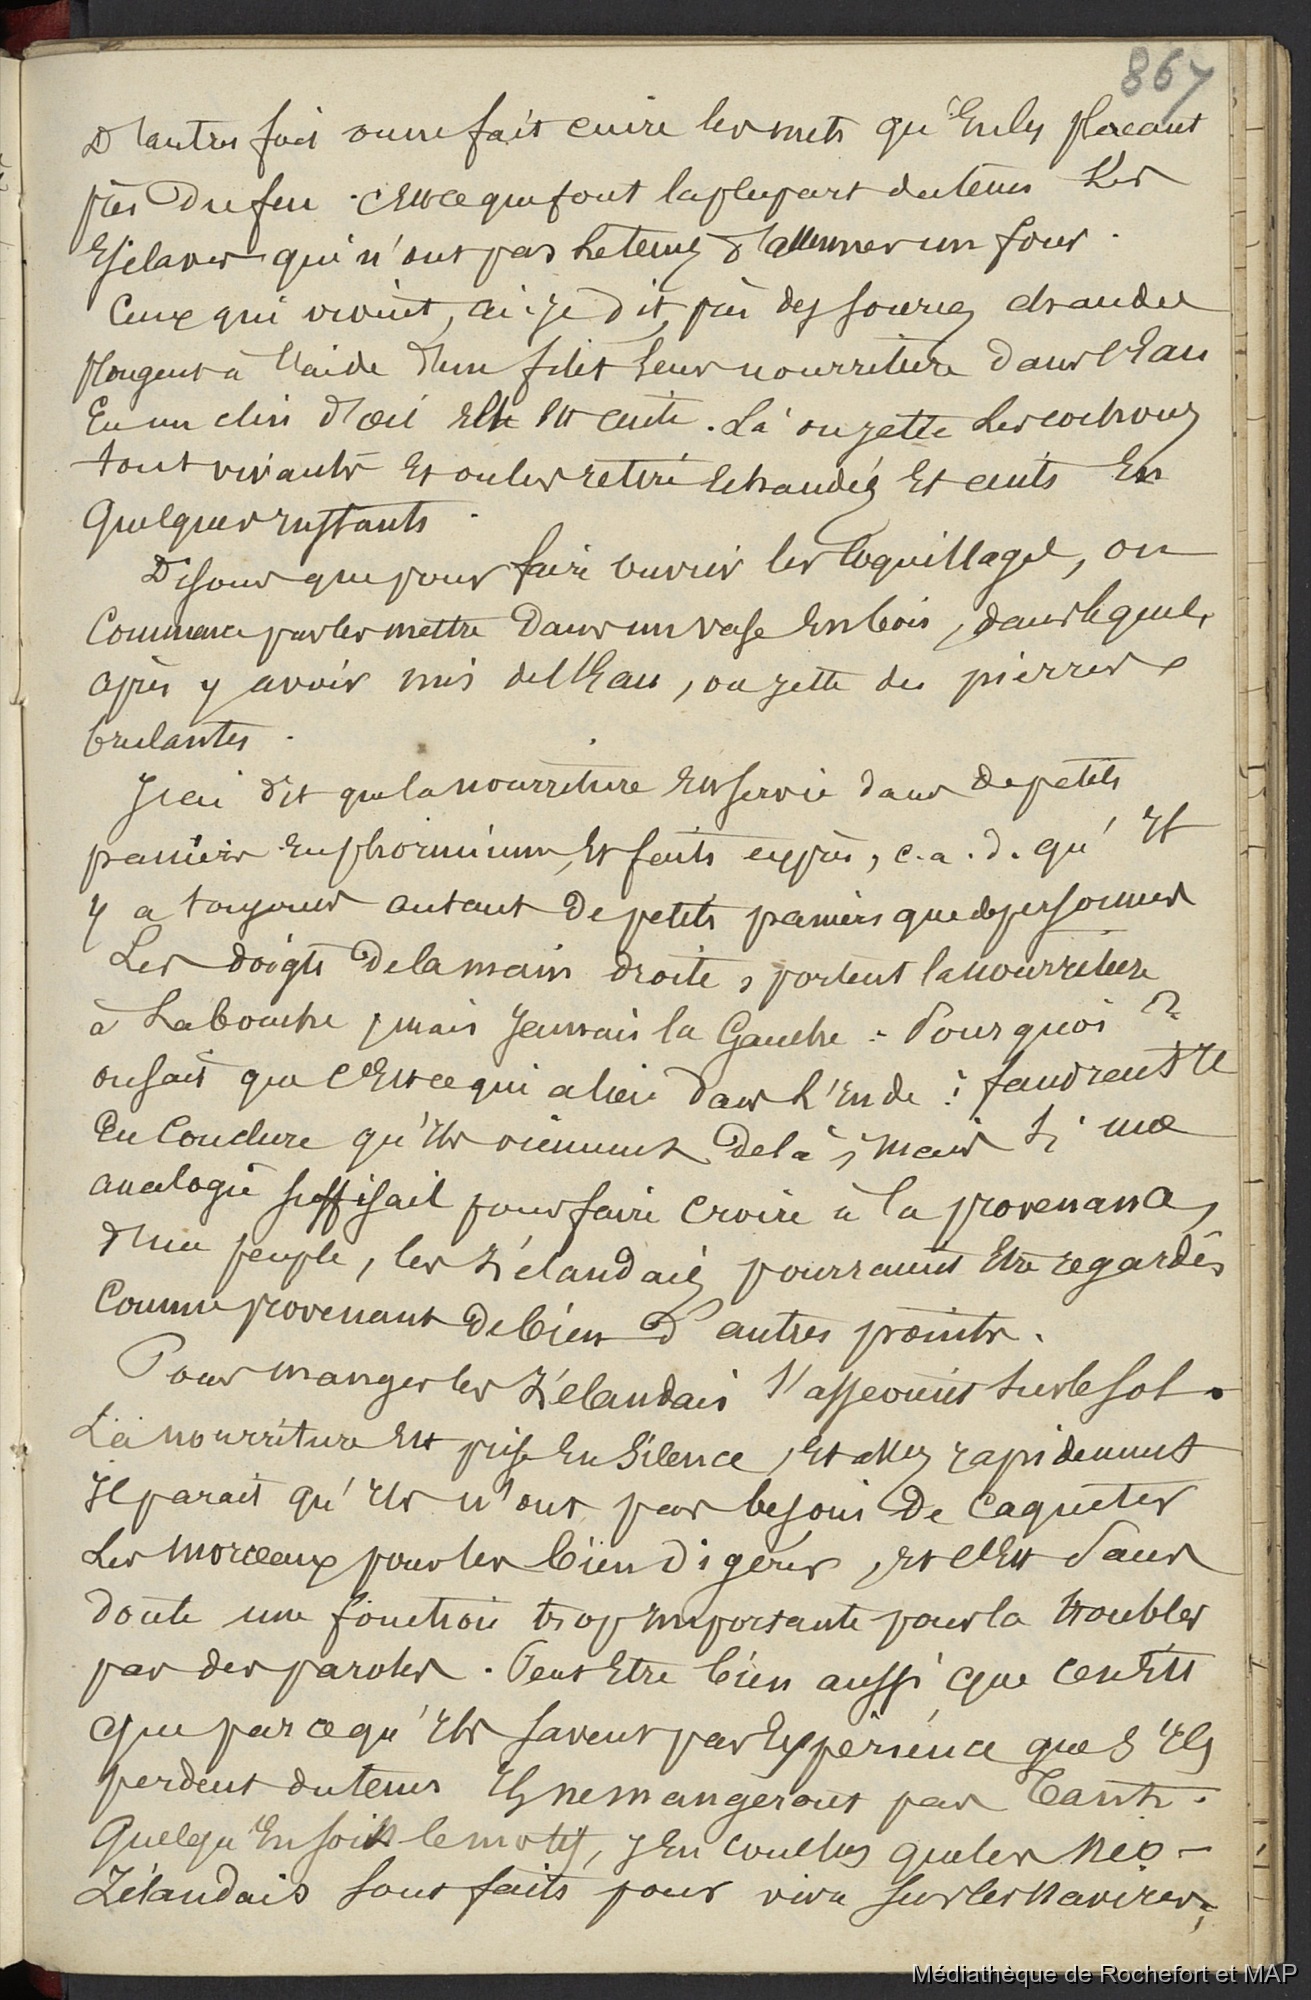 867
D'autres fois on ne fait cuire les mets qu'en les placant
près du feu. C'est ce que font la plupart du tems les
Esclaves qui n'ont pas le tems d'allumer un four.
Ceux qui vivent, ai-je dit, près des sources chaudes
plongent à l'aide d'un filet leur nourriture dans l'Eau
En un clin d'œil elle est cuite. Là on jette les cochons
tout vivants et on les retire échaudés et cuits en
quelques instants.
Disons que pour faire ouvrir les coquillages, on
commence par les mettre dans un vase en bois, dans lequel,
après y avoir mis de l'Eau, on jette des pierres
brulantes.
J'ai dit que la nourriture est servie dans de petits
paniers en phormium, et faits exprès, c.a.d. qu'il
y a toujours autant de petits paniers que de personnes
Les doigts de la main droite, portent la nourriture
à la bouche, mais jamais la Gauche. Pourquoi ?
on sait que c'est ce qui a lieu dans l'Inde : faudrait il
en conclure qu'ils viennent de là ; mais si une
analogie suffisait pour faire croire à la provenance,
d'un peuple, les Zélandais pourraient être regardés
comme provenant de bien d'autres points.
Pour manger les Zélandais s'asseoient sur le sol.
La nourriture est prise en silence, et assez rapidement
Il parait qu'ils n'ont pas besoin de caqueter
les morceaux pour les bien digérer, et c'est sans
doute une fonction trop importante pour la troubler
par des paroles. Peut être bien aussi que ce n'est
que parce qu'ils savent par expérience que s'ils
perdent du tems ils ne mangeront pas tant.
Quelqu'en soit le motif, j'en conclus que les Néo-
Zélandais sont faits pour vivre sur les navires,
Médiathèque de Rochefort et MAP